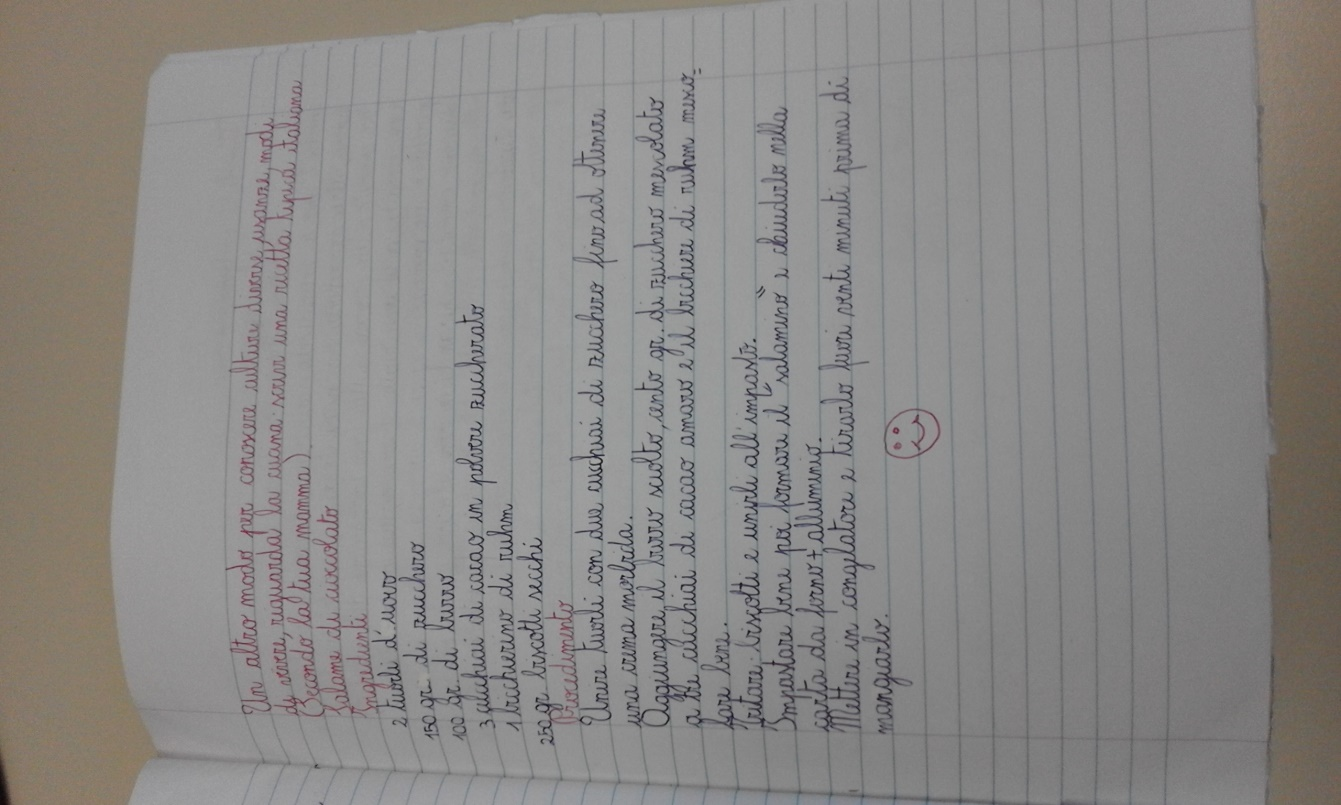 Un altro modo per conoscere culture diverse, usanze, modi
di vivere, riguarda la cucina: scrivi una ricetta tipica italiana
(Secondo la tua mamma)
Salame di cioccolato
Ingredienti
2 tuorli d'uovo
150 gr. di zucchero
100 gr. di burro
3 cucchiai di cacao in polvere zuccherato
1 bicchierino di ruhm
250 gr biscotti secchi
Procedimento
Unire tuorli con due cucchiai di zucchero fino ad ottenere
una crema morbida.
Aggiungere il burro sciolto, cento gr. di zucchero mescolato
a tre cucchiai di cacao amaro e il bicchiere di ruhm mesco=
lare bene.
Tritare biscotti e unirli all'impasto.
Impastare bene poi formare il "salamino" e chiuderlo nella
carta da forno + alluminio.
Mettere in congelatore e tirarlo fuori venti minuti prima di
mangiarlo.